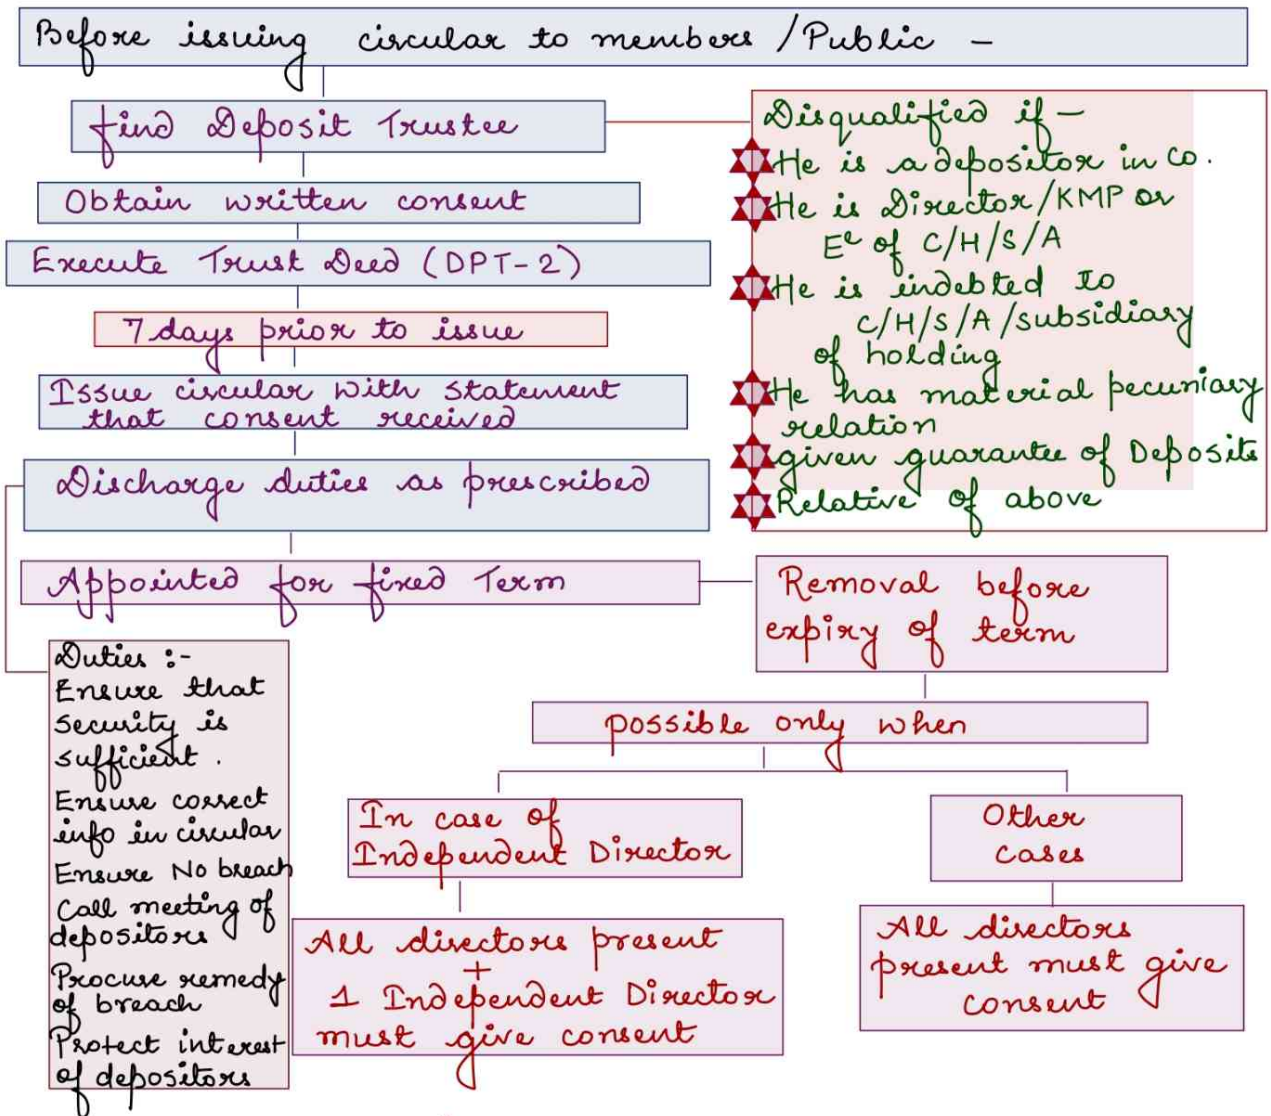 Before issuing circular to members / Public -
find Deposit Trustee
Obtain written consent
Execute Trust Deed (DPT-2)
7 days prior to issue
Issue circular with statement
that consent received
Discharge duties as prescribed
Appointed for fixed Term
Disqualified if -
He is a depositor in co.
He is Director/KMP or
Ee of C/H/S/A
He is indebted to
C/H/S/A/subsidiary
of holding
He has material pecuniary
relation
given guarantee of Deposits
Relative of above
Removal before
expiry of term
possible only when
In case of
Independent Director
All directors present
+
1 Independent Director
must give consent
Other
cases
All directors
present must give
consent
Duties :-
Ensure that
security is
sufficient.
Ensure correct
info in circular
Ensure No breach
Call meeting of
depositors
Procure remedy
of breach
Protect interest
of depositors